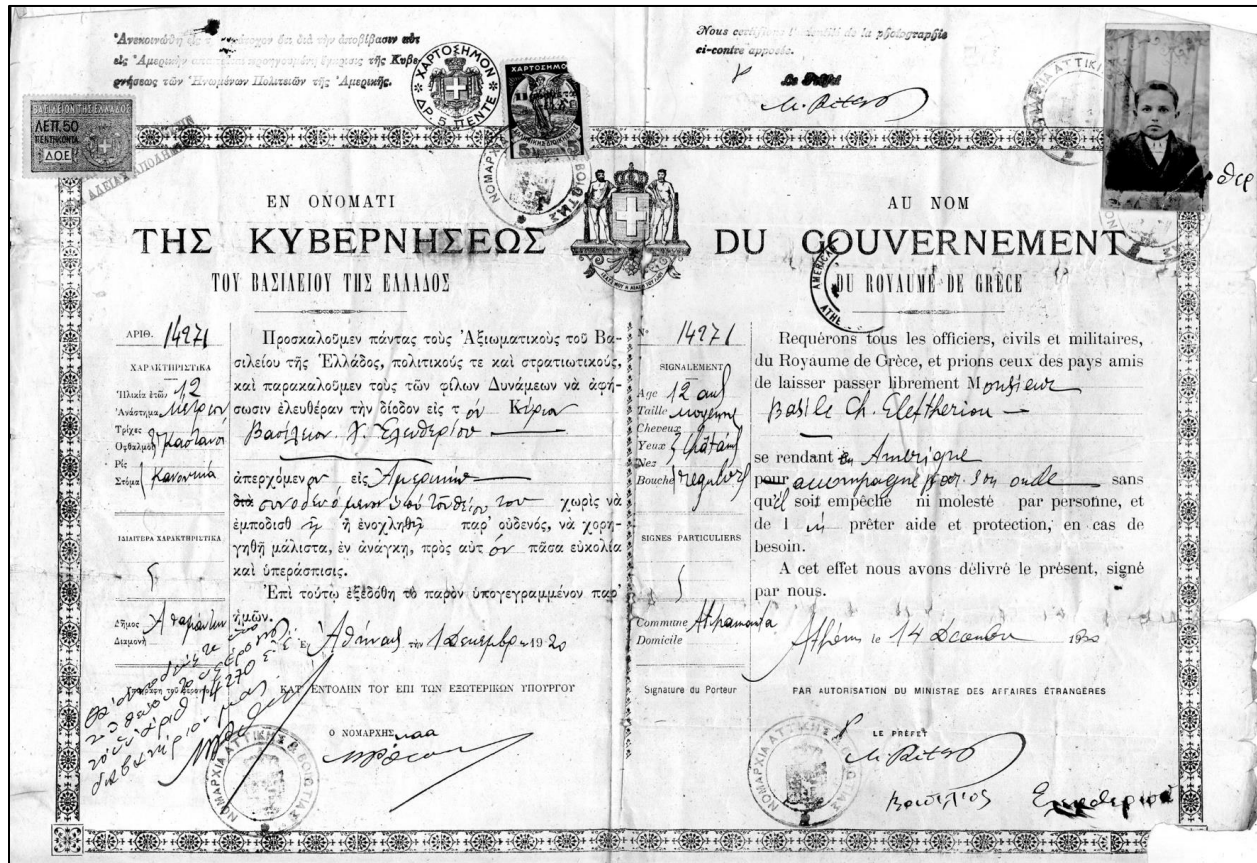 Ἀνεκοινώθη εἰς τ ὅτι διὰ τὴν ἀποβίβασιν
εἰς Ἀμερικὴν ἀπαιτεῖται προηγουμένη ἔγκρισις τῆς Κυβε-
ρνήσεως τῶν Ἡνωμένων Πολιτειῶν τῆς Ἀμερικῆς.
Nous certifions l'identité de la photographie
ci-contre apposée.
Le Préfet
ΧΑΡΤΟΣΗΜΟΝ
ΔΡ. 5 ΠΕΝΤΕ
ΧΑΡΤΟΣΗΜΟΝ
5 5
ΒΑΣΙΛΕΙΟΝ ΤΗΣ ΕΛΛΑΔΟΣ
ΛΕΠ. 50
ΠΕΝΤΗΚΟΝΤΑ
ΔΟΕ
ΝΟΜΑΡΧΙΑ ΒΟΙΩΤΙΑΣ
ΝΟΜΑΡΧΙΑ ΑΤΤΙΚΗΣ
ΕΝ ΟΝΟΜΑΤΙ
ΤΗΣ ΚΥΒΕΡΝΗΣΕΩΣ
ΤΟΥ ΒΑΣΙΛΕΙΟΥ ΤΗΣ ΕΛΛΑΔΟΣ
ΑΡΙΘ. 14271
ΧΑΡΑΚΤΗΡΙΣΤΙΚΑ
Ἡλικία ἐτῶν 12
Ἀνάστημα Μέτριον
Τρίχες
Ὀφθαλμοὶ Καστανοί
Ρὶς
Στόμα Κανονικά
ΙΔΙΑΙΤΕΡΑ ΧΑΡΑΚΤΗΡΙΣΤΙΚΑ
Δῆμος
Διαμονὴ
Προσκαλοῦμεν πάντας τοὺς Ἀξιωματικοὺς τοῦ Βα-
σιλείου τῆς Ἑλλάδος, πολιτικούς τε καὶ στρατιωτικούς,
καὶ παρακαλοῦμεν τοὺς τῶν φίλων Δυνάμεων νὰ ἀφή-
σωσιν ἐλευθέραν τὴν δίοδον εἰς τ όν Κύριον
Βασίλειον Χ. Ἐλευθερίου
ἀπερχόμενον εἰς Ἀμερικὴν
διὰ συνοδευόμενον ὑπὸ τοῦ θείου του χωρὶς νὰ
ἐμποδισθ ῇ ἢ ἐνοχληθῇ παρ' οὐδενός, νὰ χορη-
γηθῇ μάλιστα, ἐν ἀνάγκῃ, πρὸς αὐτ όν πᾶσα εὐκολία
καὶ ὑπεράσπισις.
Ἐπὶ τούτῳ ἐξεδόθη τὸ παρὸν ὑπογεγραμμένον παρ'
ἡμῶν.
Ἐν Ἀθήναις τὴν 1 Δεκεμβρ 1920
ΚΑΤ' ΕΝΤΟΛΗΝ ΤΟΥ ΕΠΙ ΤΩΝ ΕΞΩΤΕΡΙΚΩΝ ΥΠΟΥΡΓΟΥ
Ο ΝΟΜΑΡΧΗΣ
ΝΟΜΑΡΧΙΑ ΑΤΤΙΚΗΣ & ΒΟΙΩΤΙΑΣ
AU NOM
DU GOUVERNEMENT
DU ROYAUME DE GRÈCE
AMERICAN
ATHE
N° 14271
SIGNALEMENT
Age 12 ans
Taille moyenne
Cheveux
Yeux châtains
Nez
Bouche reguliers
SIGNES PARTICULIERS
Commune Athamanta
Domicile
Signature du Porteur
Requérons tous les officiers, civils et militaires,
du Royaume de Grèce, et prions ceux des pays amis
de laisser passer librement Monsieur
Basile Ch. Eleftheriou
se rendant en Amérique
pour accompagné par son oncle sans
qu'il soit empêché ni molesté par personne, et
de l ui prêter aide et protection, en cas de
besoin.
A cet effet nous avons délivré le présent, signé
par nous.
Athènes le 14 Décembre 1920
PAR AUTORISATION DU MINISTRE DES AFFAIRES ÉTRANGÈRES
LE PRÉFET
ΝΟΜΑΡΧΙΑ ΑΤΤΙΚΗΣ & ΒΟΙΩΤΙΑΣ